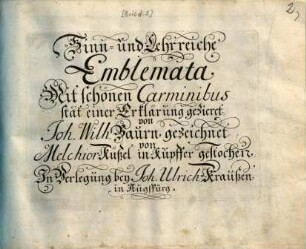 2,
Sinn- und Lehrreiche
Emblemata
Mit schönen Carminibus
stat einer Erklärung gezieret
von
Joh. Wilh. Baurn. gezeichnet
von
Melchior Küßel in Kupffer gestochen.
In Verlegung bey Joh. Ulrich Kraußen
in Augspurg.